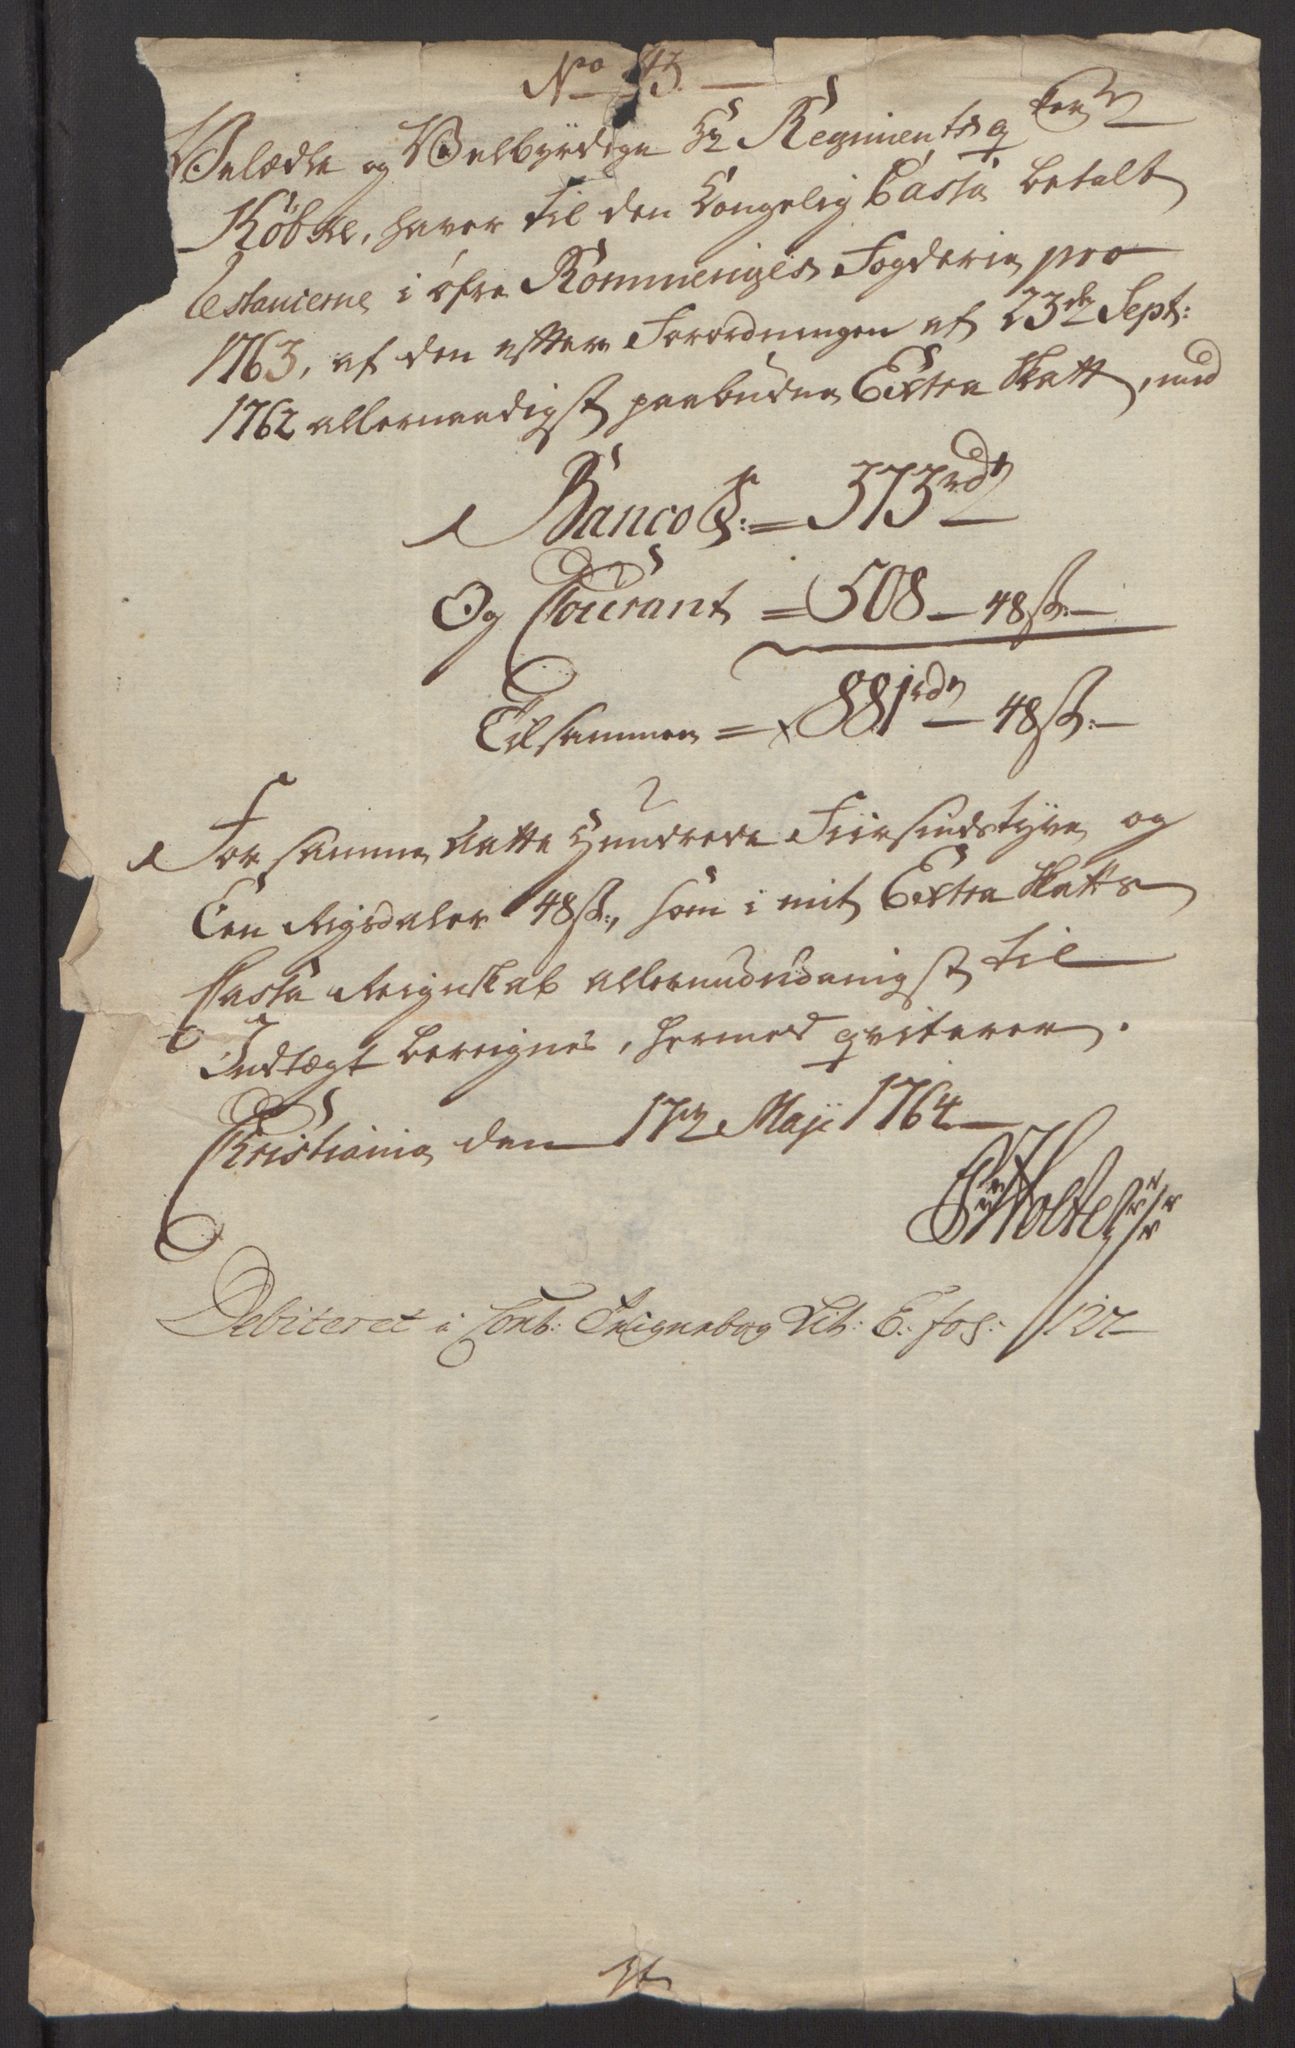 No 43
Velædle og Velbyrdige Hr Regimentsqvter
Köbke, haver til den Kongelig Cassa betalt
Restancerne i öfre Rommeriges Fogderie pro
1763, af den efter Forordningen af 23de Sept:
1762 allernaadigst paabudne Extra Skatt, med
Banco S: = 373 rdr
Og Courant = 508 – 48 s:
Tilsammen = 881 rdr – 48 s:
For samme Aatte Hundrede Fiirsindstyve og
Een Rigsdaler 48 s:, som i mit Extra Skatts
Cassa Reignskab allerunderdanigst til
Indtægt bereignes, hermed qviterer.
Christiania den 17de Maji 1764
Holte
Debiteret i Cont: Reignebog Lit: E: fol: 127